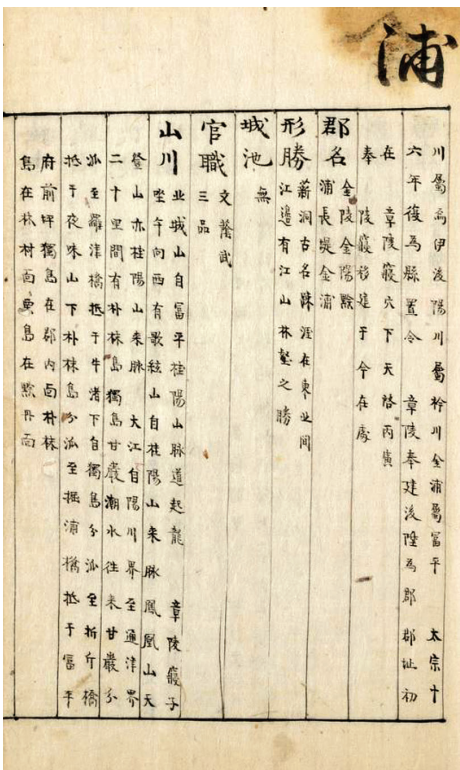 浦
川屬焉伊後陽川屬衿川金浦屬富平 太宗十
六年後爲縣置令 章陵奉建後陞爲郡郡址初
在 章陵寢穴下天啓丙寅
奉 陵寢移建于今在處
郡名 金陵金陽黔
浦長堤金浦
形勝 蒜洞古名 涯在東北間
江邊有江山林壑之勝
城池 無
官職 文蔭武
三品
山川 北城山自富平桂陽山脉道起龍 章陵寢子
坐午向西有歌絃山自桂陽山来脉鳳凰山天
登山亦桂陽山来脉 大江自陽川界至通津界
二十里間有朴村島獨島甘巖潮水往来甘巖分
派至羅津橋抵于牛渚下自獨島分派至折斤橋
抵于夜味山下朴村島分派至掘浦橋抵于富平
府前坪獨島在郡内面朴村
島在林村面 島在黔丹面